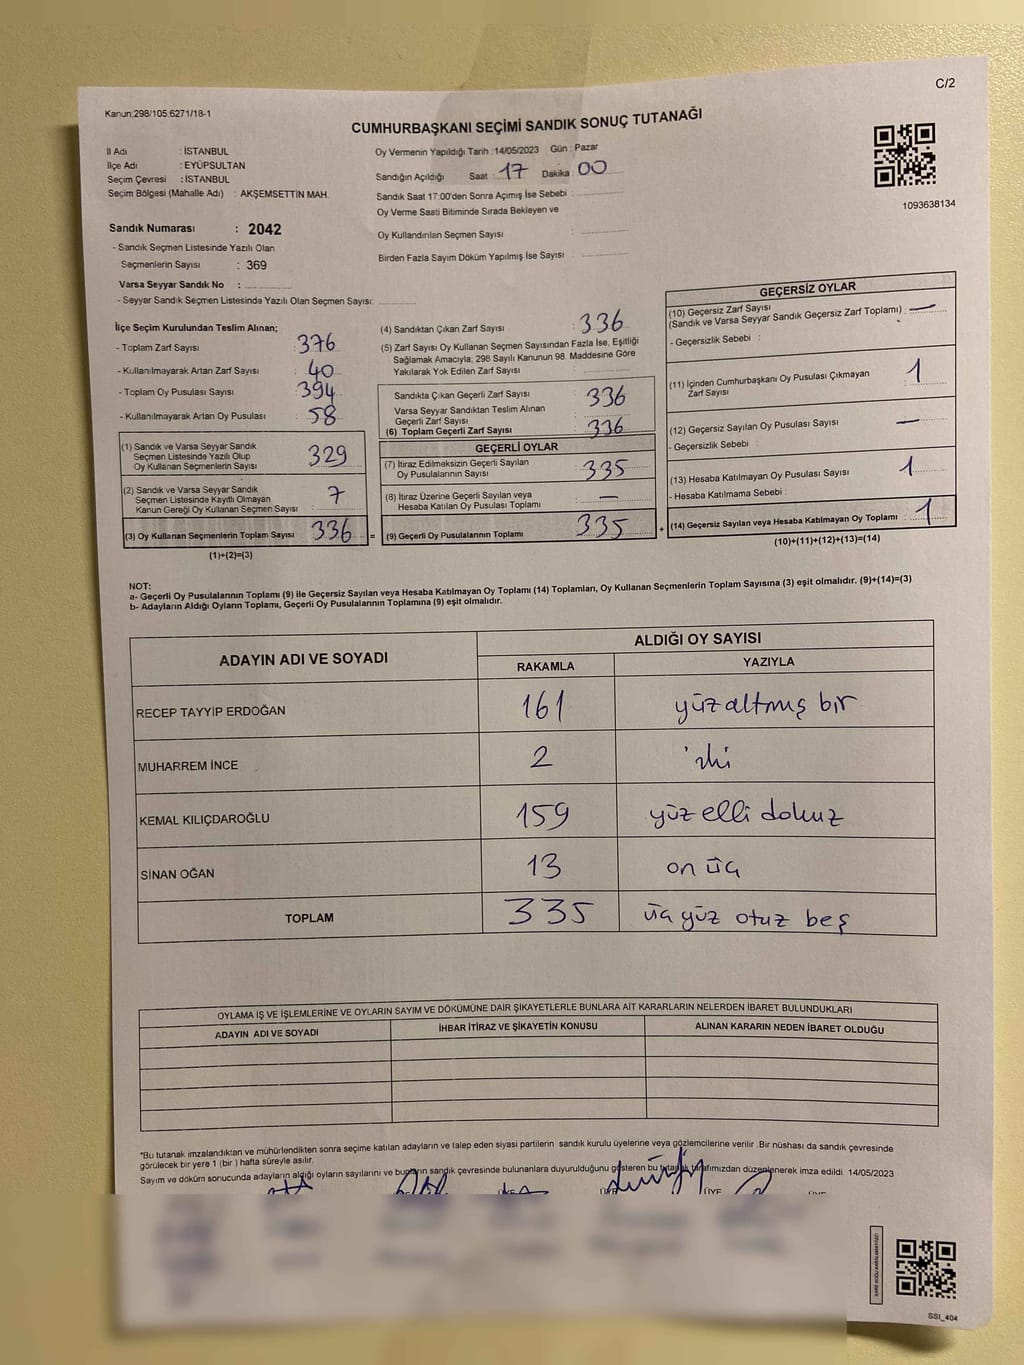 C/2
Kanun:298/105 6271/18-1
CUMHURBAŞKANI SEÇİMİ SANDIK SONUÇ TUTANAĞI
İl Adı : İSTANBUL
İlçe Adı : EYÜPSULTAN
Seçim Çevresi : İSTANBUL
Seçim Bölgesi (Mahalle Adı) : AKŞEMSETTİN MAH.
Oy Vermenin Yapıldığı Tarih :14/05/2023 Gün : Pazar
Sandığın Açıldığı Saat : 17 Dakika : 00
Sandık Saat 17:00'den Sonra Açımış İse Sebebi :
Oy Verme Saati Bitiminde Sırada Bekleyen ve
Oy Kullandırılan Seçmen Sayısı :
Birden Fazla Sayım Döküm Yapılmış İse Sayısı :
1093638134
Sandık Numarası : 2042
- Sandık Seçmen Listesinde Yazılı Olan
Seçmenlerin Sayısı : 369
Varsa Seyyar Sandık No :
- Seyyar Sandık Seçmen Listesinde Yazılı Olan Seçmen Sayısı:
İlçe Seçim Kurulundan Teslim Alınan;
- Toplam Zarf Sayısı : 376
- Kullanılmayarak Artan Zarf Sayısı : 40
- Toplam Oy Pusulası Sayısı : 394
- Kullanılmayarak Artan Oy Pusulası : 58
(1) Sandık ve Varsa Seyyar Sandık
Seçmen Listesinde Yazılı Olup
Oy Kullanan Seçmenlerin Sayısı : 329
(2) Sandık ve Varsa Seyyar Sandık
Seçmen Listesinde Kayıtlı Olmayan
Kanun Gereği Oy Kullanan Seçmen Sayısı : 7
(3) Oy Kullanan Seçmenlerin Toplam Sayısı : 336 =
(1)+(2)=(3)
(4) Sandıktan Çıkan Zarf Sayısı : 336
(5) Zarf Sayısı Oy Kullanan Seçmen Sayısından Fazla İse, Eşitliği
Sağlamak Amacıyla; 298 Sayılı Kanunun 98. Maddesine Göre
Yakılarak Yok Edilen Zarf Sayısı :
Sandıkta Çıkan Geçerli Zarf Sayısı : 336
Varsa Seyyar Sandıktan Teslim Alınan
Geçerli Zarf Sayısı :
(6) Toplam Geçerli Zarf Sayısı : 336
GEÇERLİ OYLAR
(7) İtiraz Edilmeksizin Geçerli Sayılan
Oy Pusulalarının Sayısı : 335
(8) İtiraz Üzerine Geçerli Sayılan veya
Hesaba Katılan Oy Pusulası Toplamı : —
(9) Geçerli Oy Pusulalarının Toplamı : 335 +
GEÇERSİZ OYLAR
(10) Geçersiz Zarf Sayısı
(Sandık ve Varsa Seyyar Sandık Geçersiz Zarf Toplamı) : —
- Geçersizlik Sebebi :
(11) İçinden Cumhurbaşkanı Oy Pusulası Çıkmayan
Zarf Sayısı : 1
(12) Geçersiz Sayılan Oy Pusulası Sayısı : —
- Geçersizlik Sebebi :
(13) Hesaba Katılmayan Oy Pusulası Sayısı : 1
- Hesaba Katılmama Sebebi :
(14) Geçersiz Sayılan veya Hesaba Katılmayan Oy Toplamı : 1
(10)+(11)+(12)+(13)=(14)
NOT:
a- Geçerli Oy Pusulalarının Toplamı (9) ile Geçersiz Sayılan veya Hesaba Katılmayan Oy Toplamı (14) Toplamları, Oy Kullanan Seçmenlerin Toplam Sayısına (3) eşit olmalıdır. (9)+(14)=(3)
b- Adayların Aldığı Oyların Toplamı, Geçerli Oy Pusulalarının Toplamına (9) eşit olmalıdır.
ADAYIN ADI VE SOYADI
ALDIĞI OY SAYISI
RAKAMLA YAZIYLA
RECEP TAYYİP ERDOĞAN 161 yüzaltmış bir
MUHARREM İNCE 2 iki
KEMAL KILIÇDAROĞLU 159 yüz elli dokuz
SİNAN OĞAN 13 on üç
TOPLAM 335 üç yüz otuz beş
OYLAMA İŞ VE İŞLEMLERİNE VE OYLARIN SAYIM VE DÖKÜMÜNE DAİR ŞİKAYETLERLE BUNLARA AİT KARARLARIN NELERDEN İBARET BULUNDUKLARI
ADAYIN ADI VE SOYADI İHBAR İTİRAZ VE ŞİKAYETİN KONUSU ALINAN KARARIN NEDEN İBARET OLDUĞU
*Bu tutanak imzalandıktan ve mühürlendikten sonra seçime katılan adayların ve talep eden siyasi partilerin sandık kurulu üyelerine veya gözlemcilerine verilir .Bir nüshası da sandık çevresinde
görülecek bir yere 1 (bir ) hafta süreyle asılır.
Sayım ve döküm sonucunda adayların aldığı oyların sayılarını ve bunların sandık çevresinde bulunanlara duyurulduğunu gösteren bu tutanak tarafımızdan düzenlenerek imza edildi. 14/05/2023
ÜYE ÜYE ÜYE
SSI_404